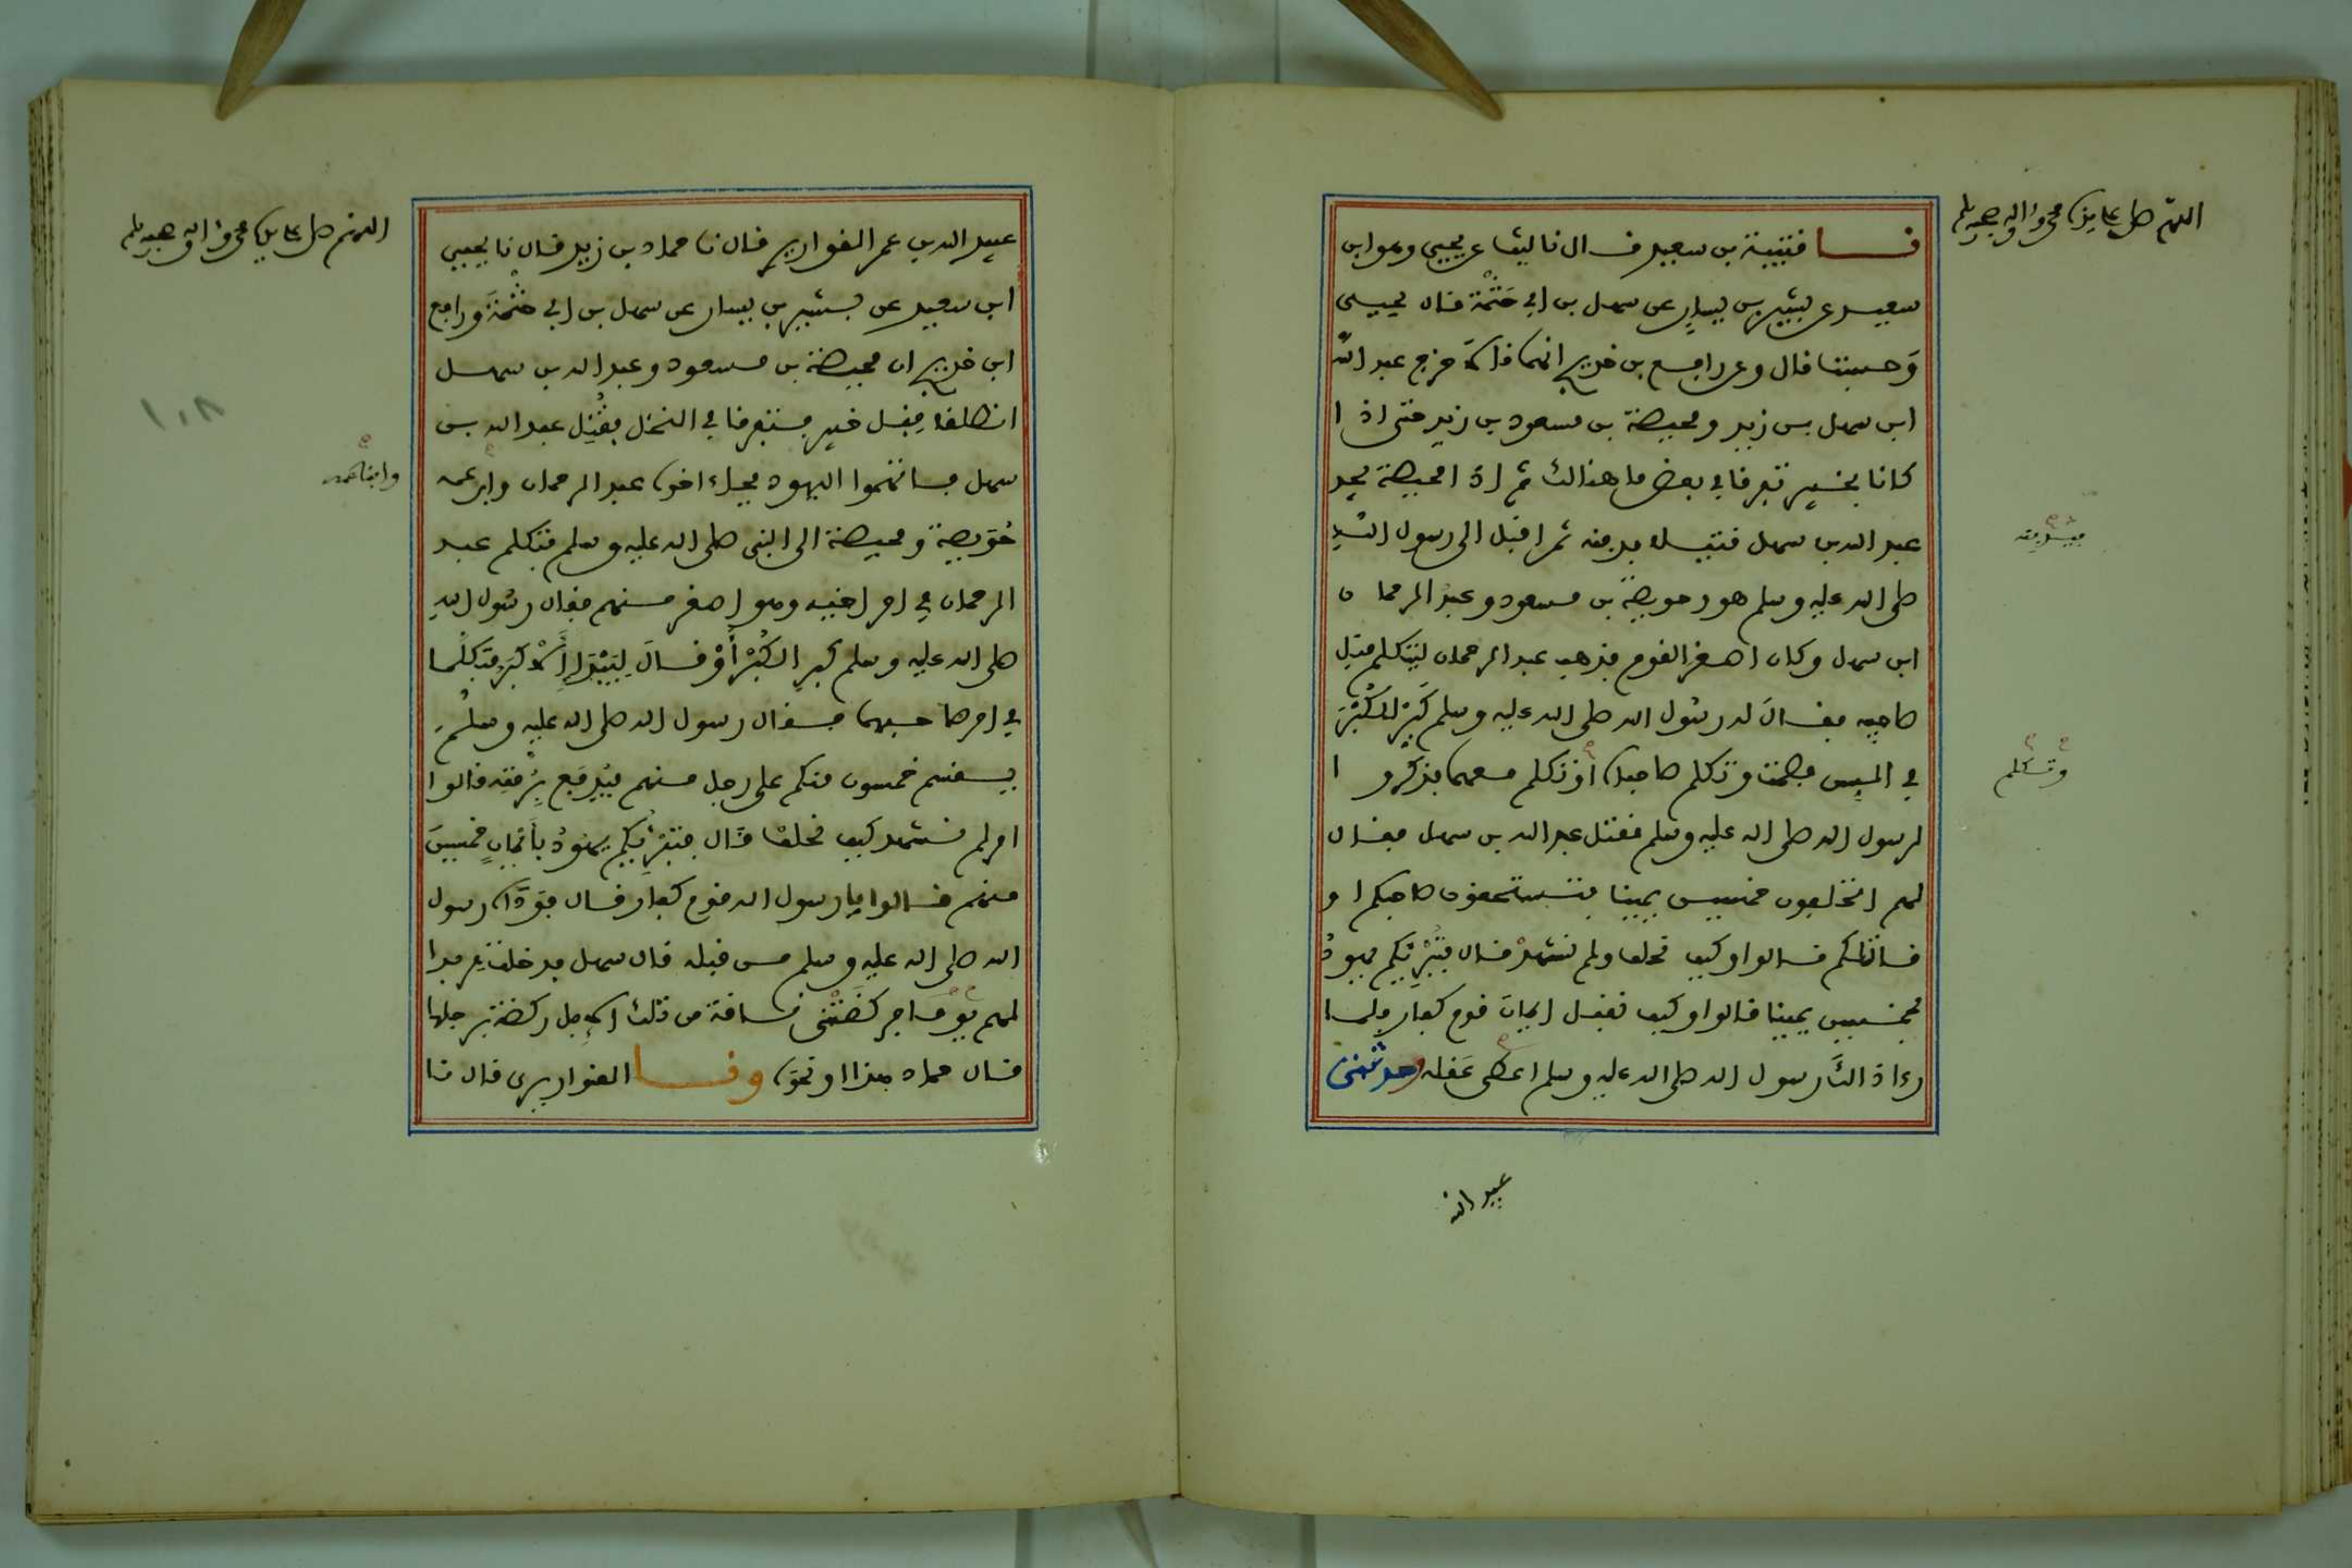 اللهم صل على سيدنا محمد وءاله وصحبه وسلم
نا قتيبة بن سعيد قال نا ليث عن يحيى وهو ابن
سعيد عن بشير بن يسار عن سهل بن ابي حَثْمَة قال يحيى
وَحسبت قال وعن رافع بن خديج انهما قالا خرج عبد الله
ابن سهل بن زيد ومحيصة بن مسعود بن زيد حتى اذا
كانا بخيبر تفرقا في بعض ما هنالك ثم اذا محيصة يجد
عبد الله بن سهل قتيلا فدفنه ثم اقبل الى رسول الله
صلى الله عليه وسلم هو وحويصة بن مسعود وعبد الرحمان
ابن سهل وكان اصغر القوم فذهب عبد الرحمان ليتكلم قبل
صاحبيه فقال له رسول الله صلى الله عليه وسلم كَبّر الكُبْرَ
في السن فصمت وتكلم صاحباه وتكلم معهما فذكروا
لرسول الله صلى الله عليه وسلم مقتل عبد الله بن سهل فقال
لهم اتحلفون خمسين يمينا فتستحقون صاحبكم او
قاتلكم قالوا وكيف نحلف ولم نشهد قال فتُبْرِئكم يهود
بخمسين يمينا قالوا وكيف نقبل ايمان قوم كفار فلما
رءا ذالك رسول الله صلى الله عليه وسلم اعطى عَقله وحدثنى
فدفنه
وتكلم
عبيد الله
اللهم صل على سيدنا محمد وءاله وصحبه وسلم
عبيد الله بن عمر القواريري قال نا حماد بن زيد قال نا يحيى
ابن سعيد عن بشير بن يسار عن سهل بن ابي حَثْمَةَ ورافع
ابن خديج ان محيصة بن مسعود وعبد الله بن سهل
انطلقا قِبل خيبر فتفرقا في النخل فقُتِل عبد الله بن
سهل فاتهموا اليهود فجاء اخوه عبد الرحمان وابن عمه
حُوَيصة ومحيصة الى النبي صلى الله عليه وسلم فتكلم عبد
الرحمان في امر اخيه وهو اصغر منهم فقال رسول الله
صلى الله عليه وسلم كَبرِ الكُبْرَ أوْ قالَ لِيَبْدَإِ الأَكبَرُ فتكلَّما
في امر صاحبهما فقال رسول الله صلى الله عليه وسلم
يقسم خمسون منكم على رجل منهم فيُدفَع بِرُمّتِه قالوا
امر لم نشهد كيف نحلف قال فتبرئكم يهودُ بأيمانِ خمسينَ
منهم قالوا يا رسول الله قوم كفار قال فوَدَاه رسول
الله صلى الله عليه وسلم من قبله قال سهل فدخلت مربدا
لهم يومًا فركضَتْنى ناقة من تلك الإبل ركضة برجلها
قال حماد هذا او نحوه ونا القواريرى قال نا
وابنا عمه
١٠٨